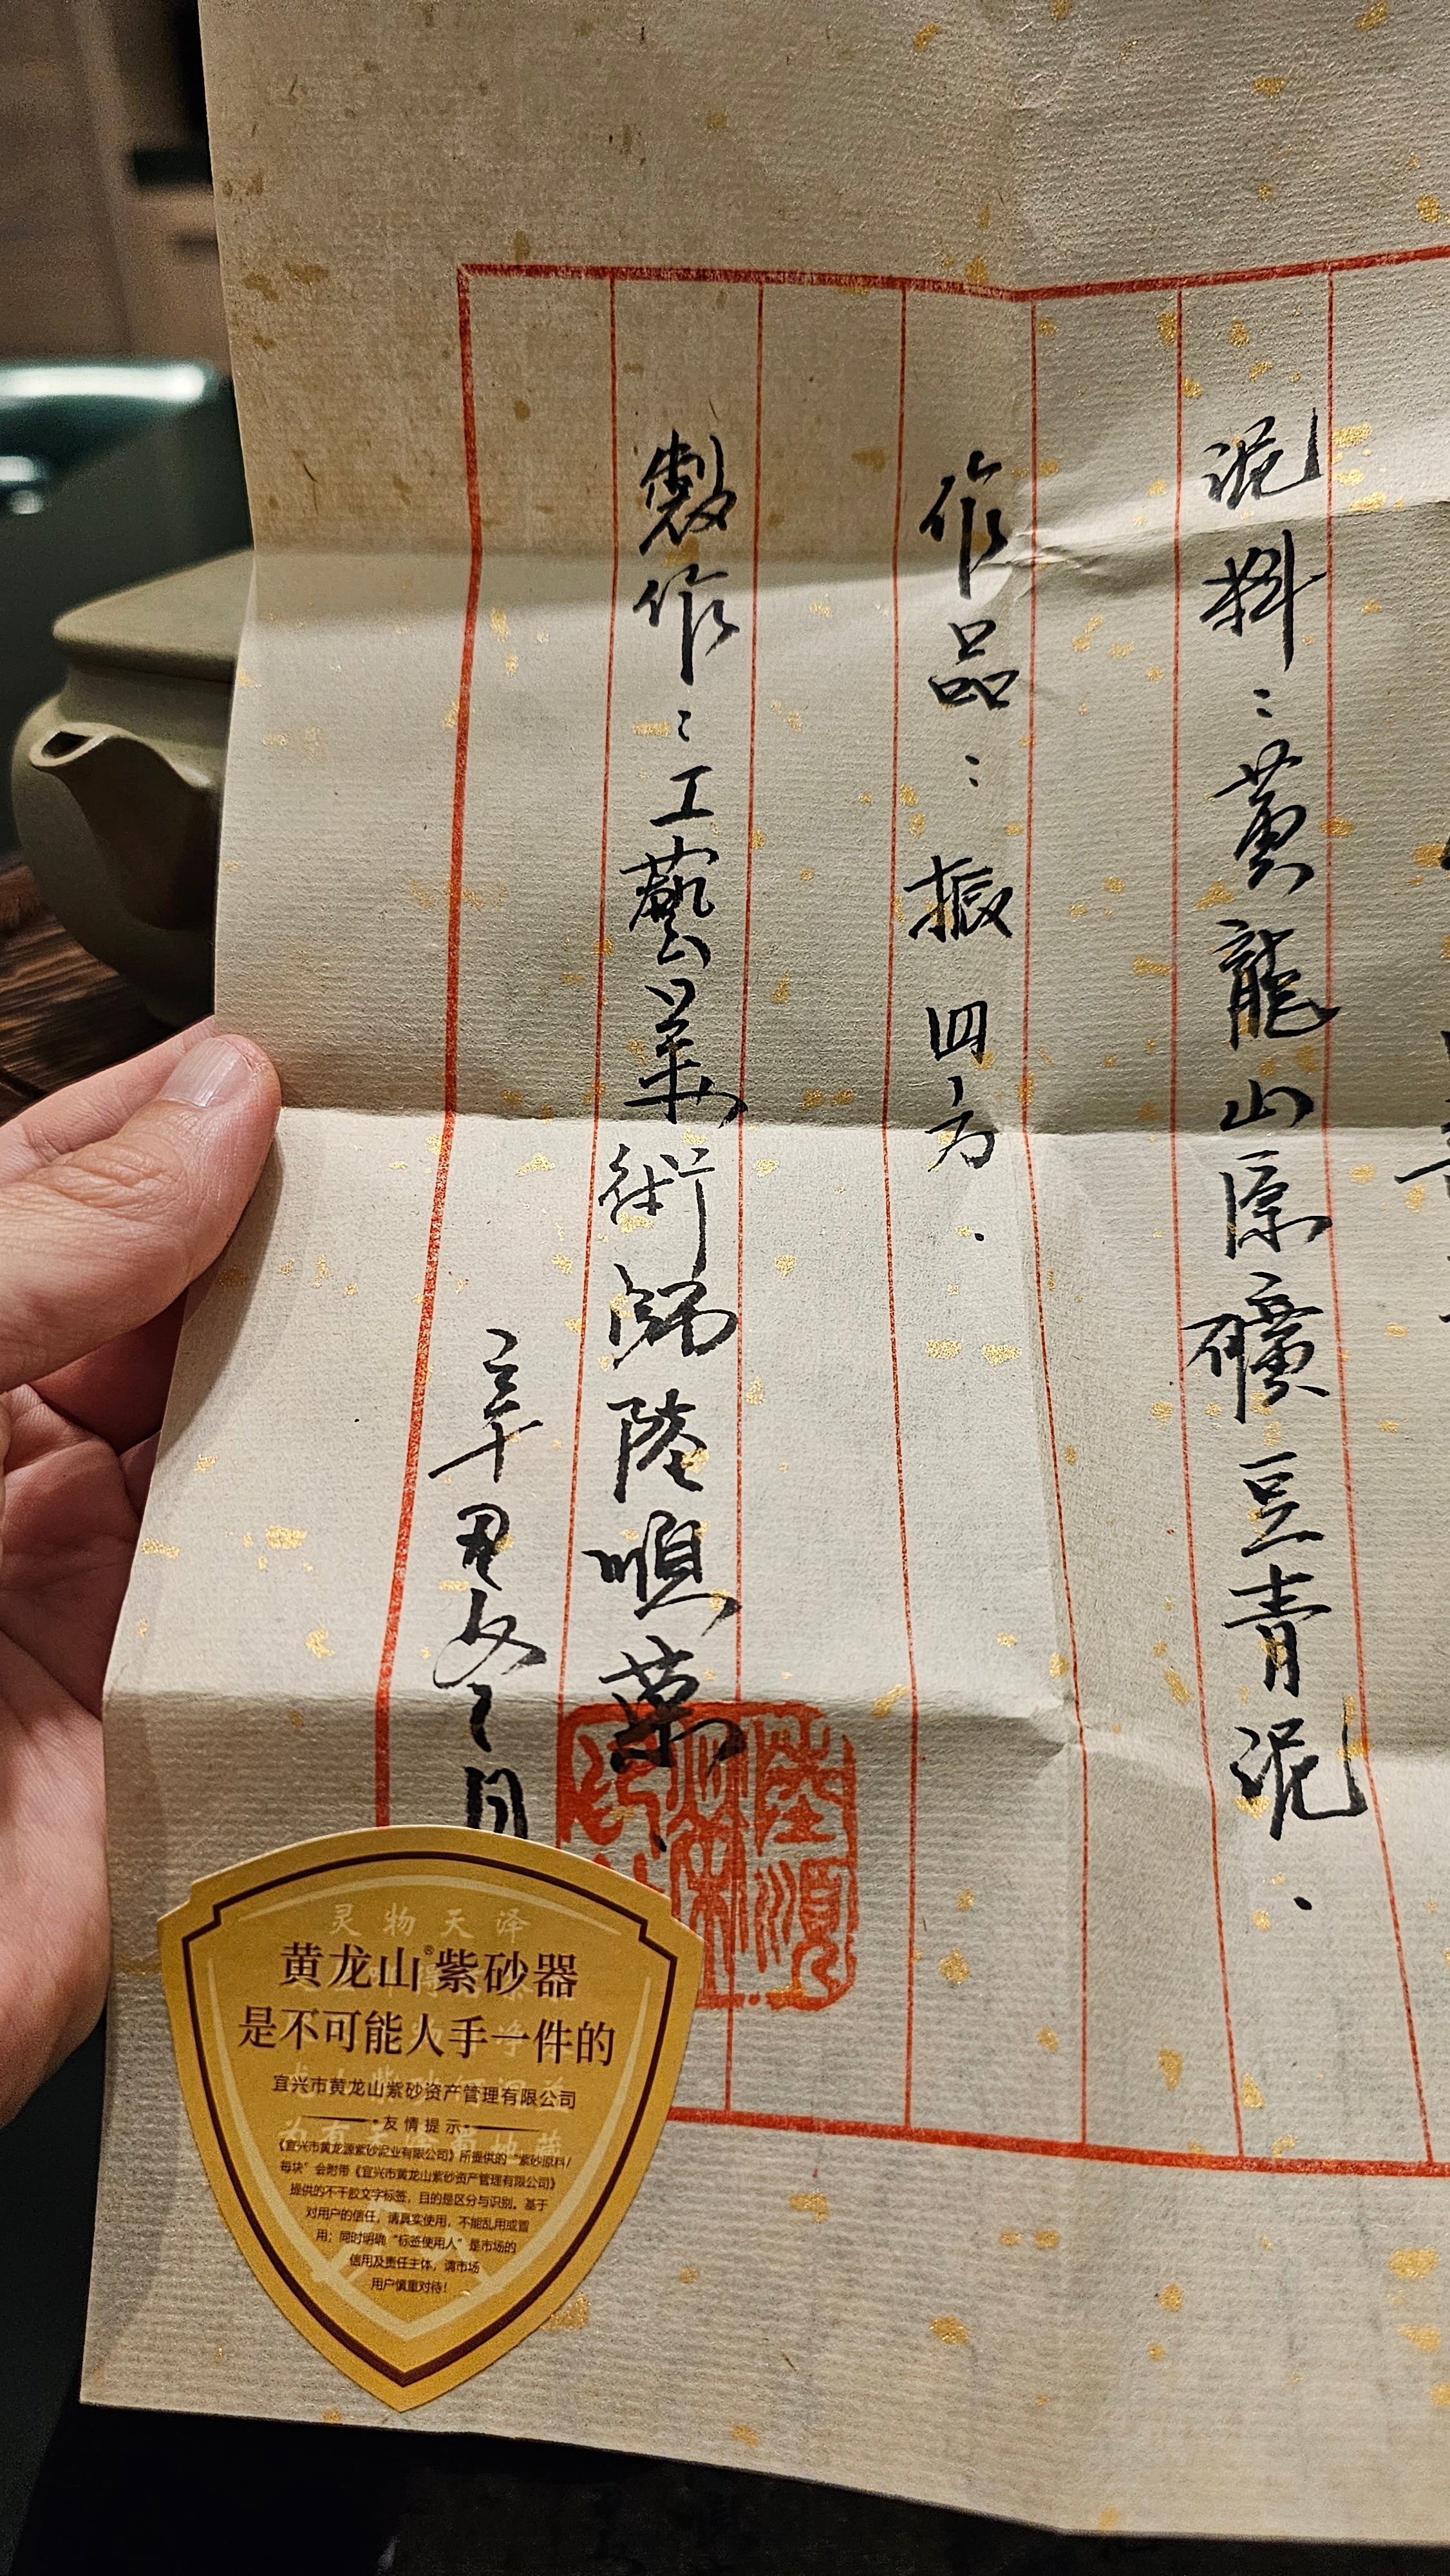 泥料：黃龍山原礦豆青泥.
作品：振四方.
製作：工藝美術師陸順萊.
辛丑冬月
陸順
灵物天泽
黄龙山®紫砂器
是不可能人手一件的
宜兴市黄龙山紫砂资产管理有限公司
友情提示
《宜兴市黄龙源紫砂泥业有限公司》所提供的“紫砂原料/
每块”会附带《宜兴市黄龙山紫砂资产管理有限公司》
提供的不干胶文字标签，目的是区分与识别。基于
对用户的信任，请真实使用，不能乱用或冒
用；同时明确“标签使用人”是市场的
信用及责任主体，请市场
用户慎重对待！